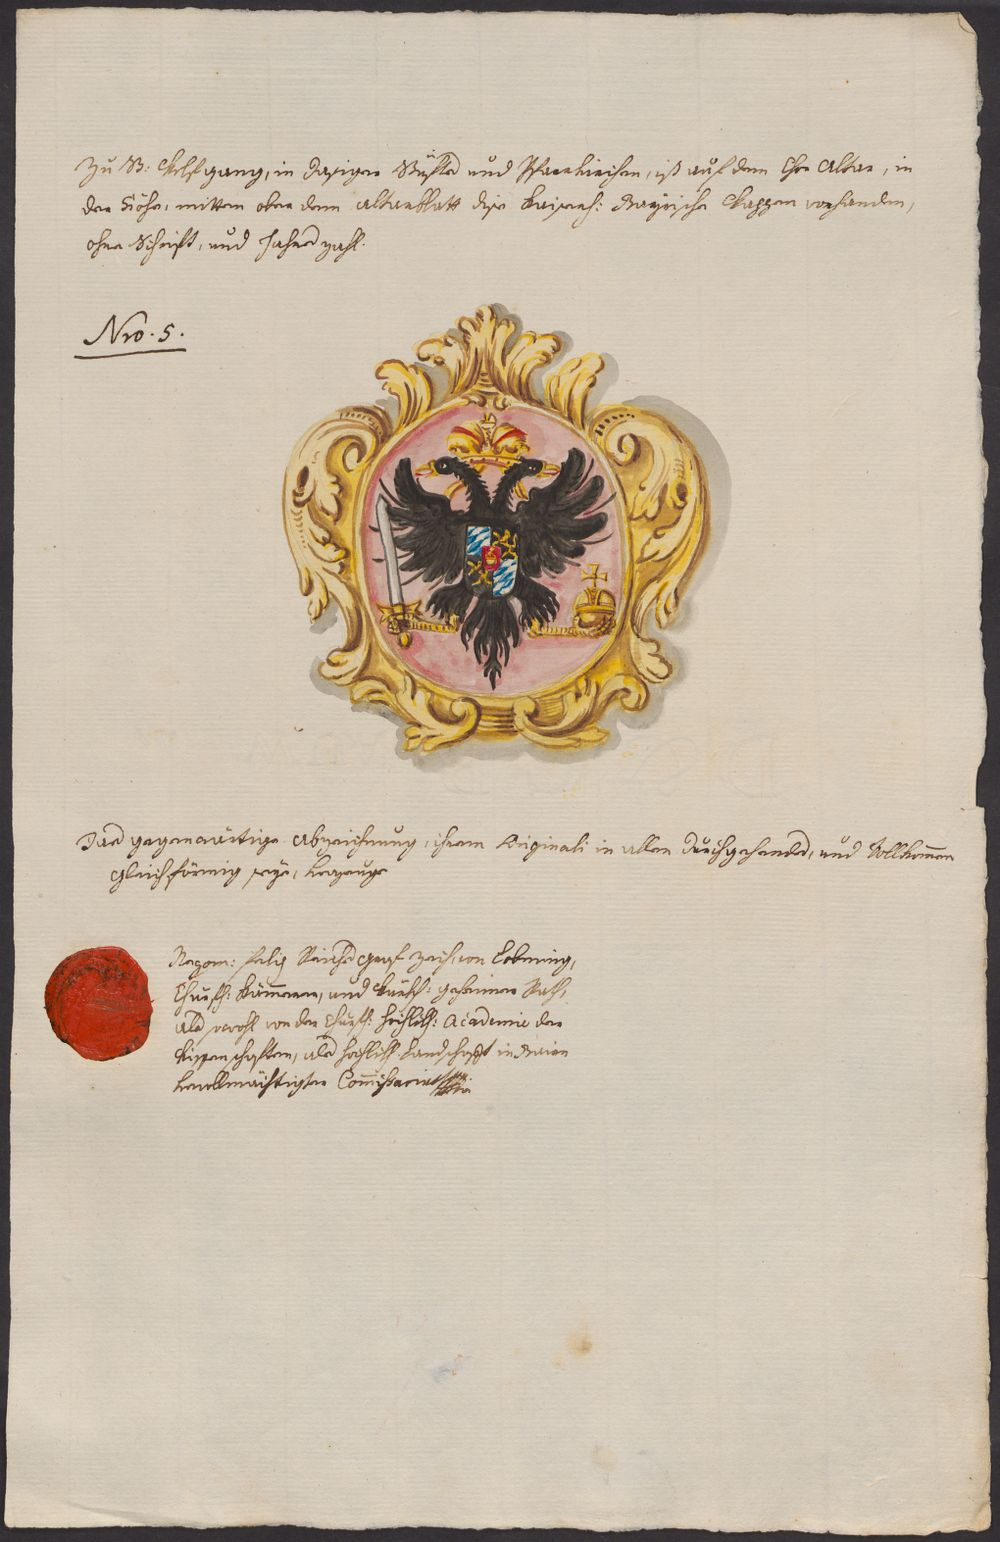 Zu St: Wolfgang, in dasiger Stüfft und Pfarrkirchen, ist auf dem Chor Altar, in
der Höhe, mitten ober dem Altarblatt dise Kaiserl: Bayrische Wappen vorhanden,
ohne Schrift, und Jahrs zahl.
Nro. 5.
Das gegenwärtige Abzeichnung, ihrem Originali in allen durchgehends, und Vollkommen
gleichförmig seye, bezeuge
Maxm: Felix Reichs Graf von
Churfl: Kämmerer, und Churfl: geheimer Rath,
als sowohl von der Churfl: hochlöbl: Academie der
Wissenschaften, als hochlöbl: Landschafft in Baiern
bevollmächtigter Commissarius